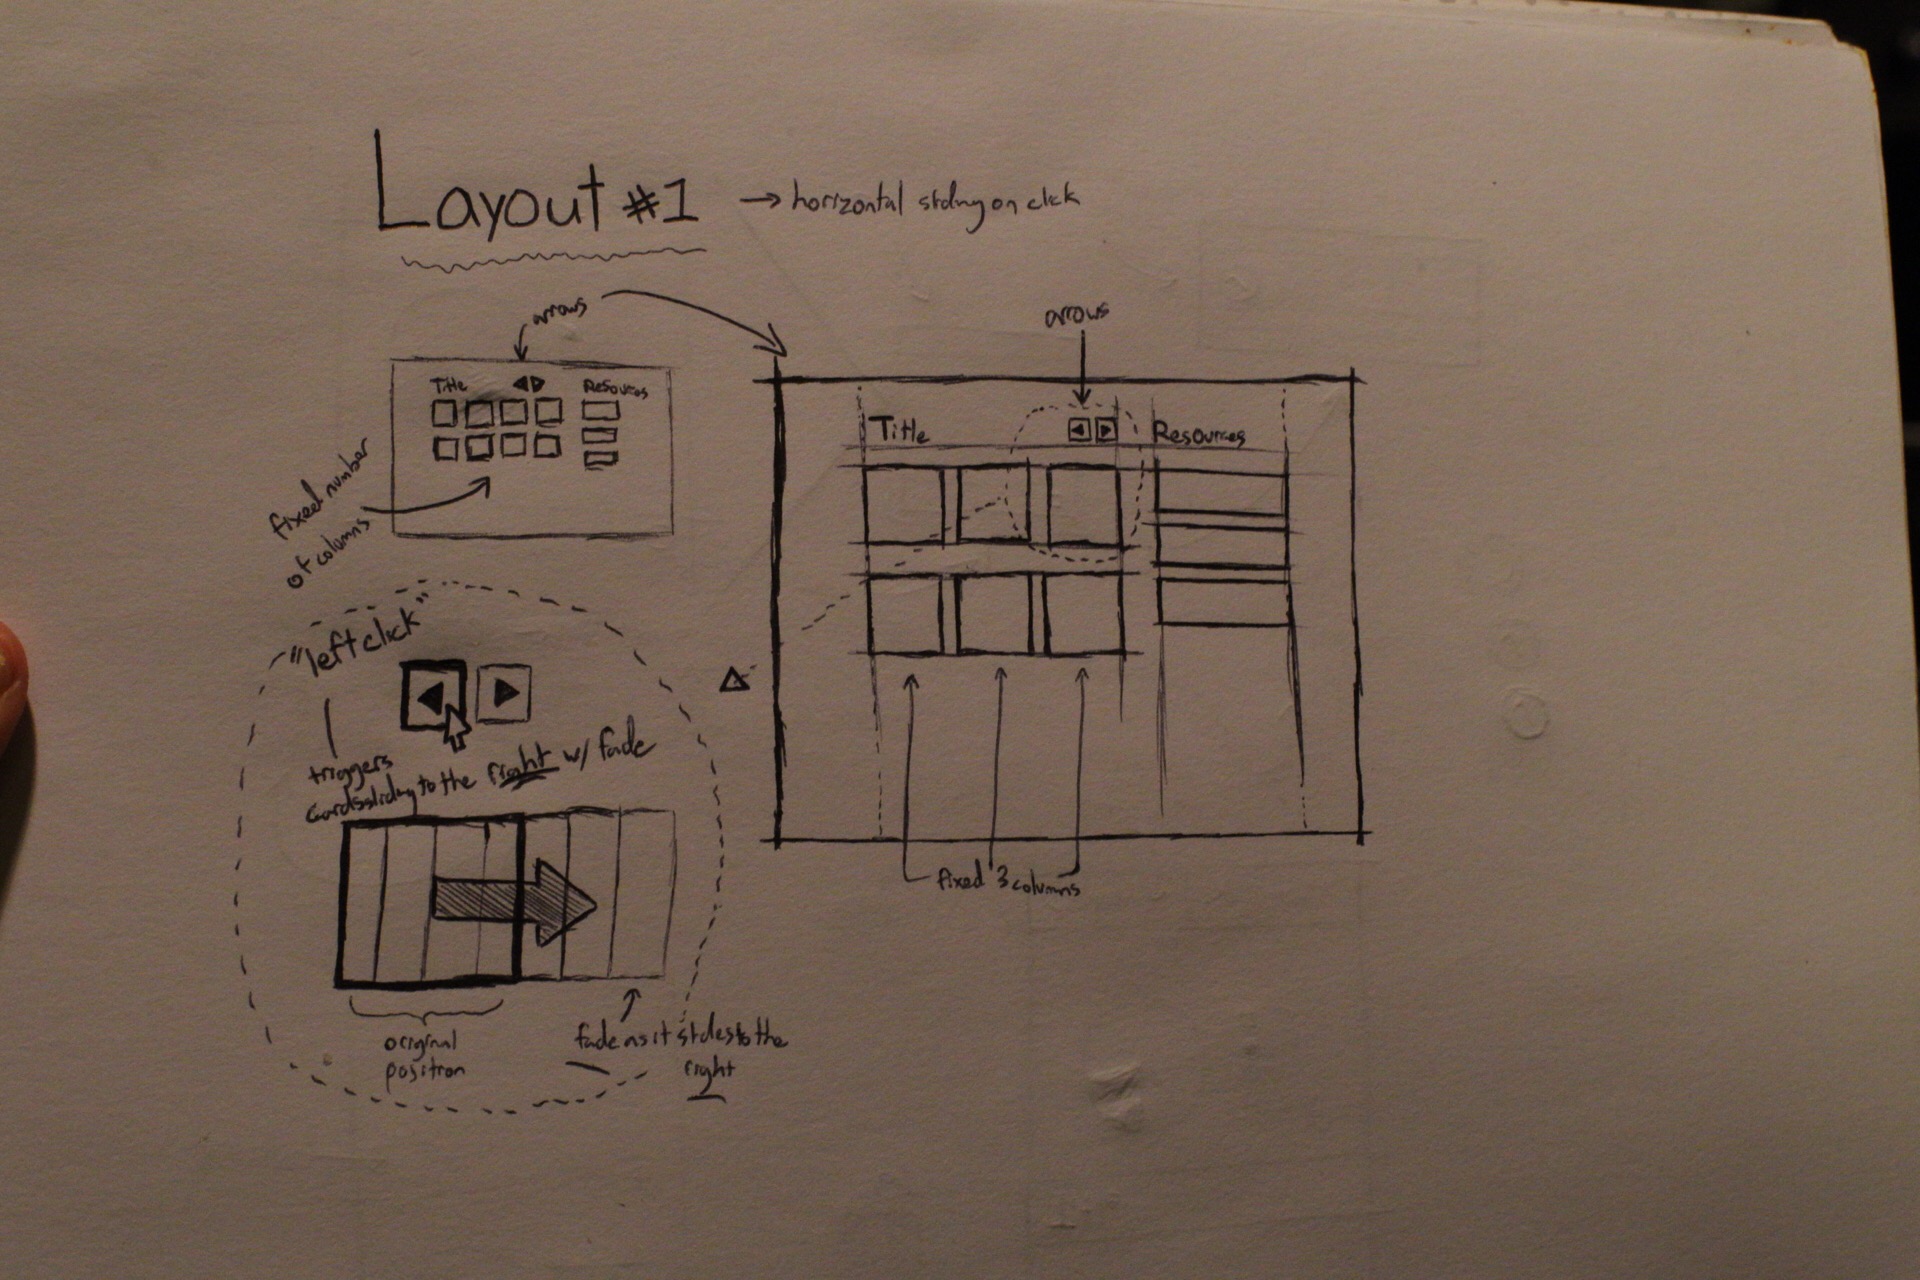 Layout #1
→ horizontal sliding on click
arrows
Title
Resources
fixed number
of columns
arrows
Title
Resources
fixed 3 columns
"left click"
triggers
cards sliding to the right w/ fade
original
position
fade as it slides to the
right